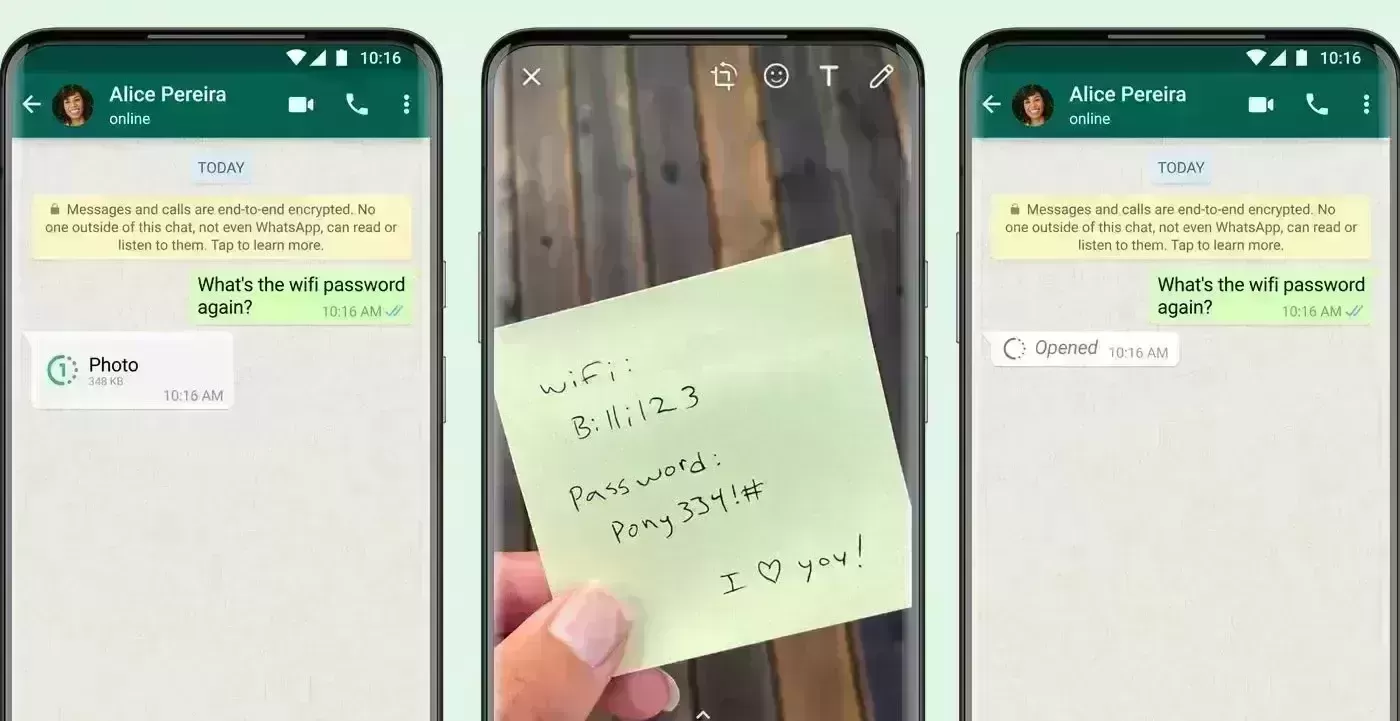 10:16
Alice Pereira
online
TODAY
Messages and calls are end-to-end encrypted. No
one outside of this chat, not even WhatsApp, can read or
listen to them. Tap to learn more.
What's the wifi password
again?
10:16 AM
1
Photo
348 KB
10:16 AM
T
wifi:
Billi123
Password:
Pony334!#
I ♡ you!
10:16
Alice Pereira
online
TODAY
Messages and calls are end-to-end encrypted. No
one outside of this chat, not even WhatsApp, can read or
listen to them. Tap to learn more.
What's the wifi password
again?
10:16 AM
Opened
10:16 AM